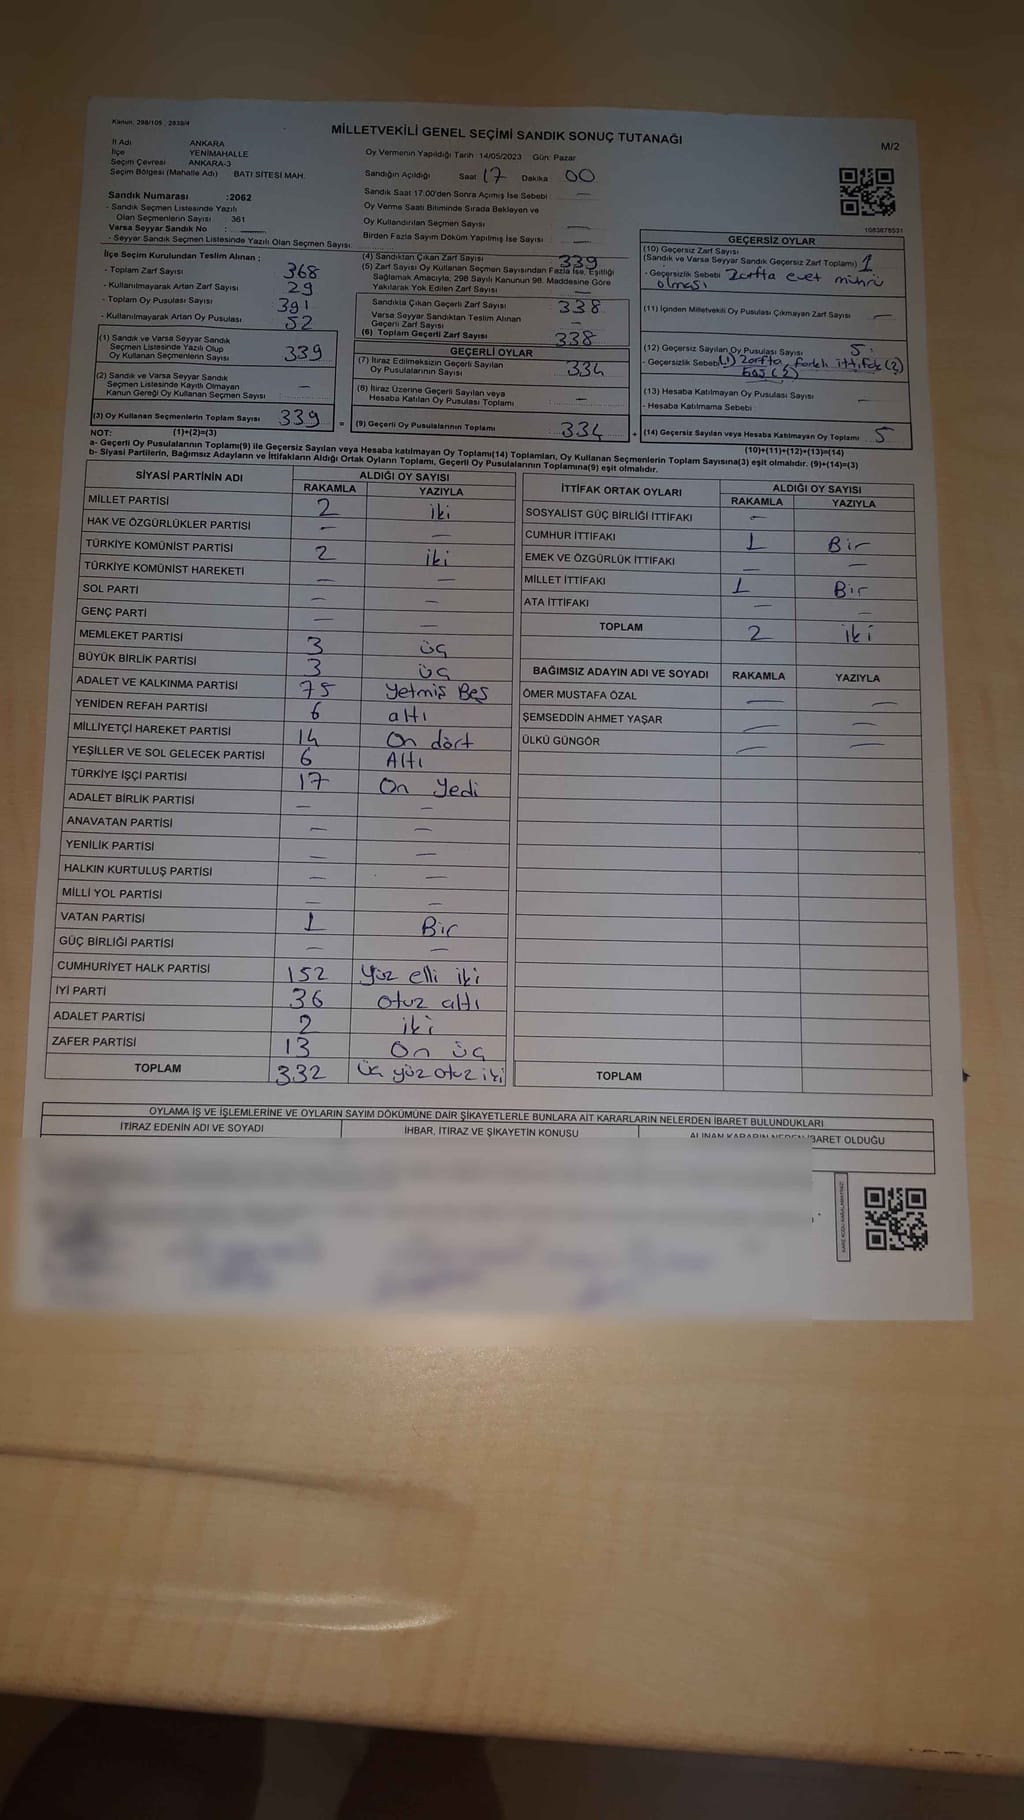 Kanun, 298/105 , 2839/4
MİLLETVEKİLİ GENEL SEÇİMİ SANDIK SONUÇ TUTANAĞI
M/2
İl Adı ANKARA
İlçe YENİMAHALLE
Seçim Çevresi ANKARA-3
Seçim Bölgesi (Mahalle Adı) BATI SİTESİ MAH.
Oy Vermenin Yapıldığı Tarih :14/05/2023 Gün: Pazar
Sandığın Açıldığı Saat 17 Dakika 00
Sandık Saat 17:00'den Sonra Açılmış İse Sebebi : —
Oy Verme Saati Bitiminde Sırada Bekleyen ve
Oy Kullandırılan Seçmen Sayısı : —
Birden Fazla Sayım Döküm Yapılmış İse Sayısı : —
Sandık Numarası :2062
- Sandık Seçmen Listesinde Yazılı
Olan Seçmenlerin Sayısı : 361
Varsa Seyyar Sandık No :
- Seyyar Sandık Seçmen Listesinde Yazılı Olan Seçmen Sayısı:
1083878531
İlçe Seçim Kurulundan Teslim Alınan :
- Toplam Zarf Sayısı 368
- Kullanılmayarak Artan Zarf Sayısı 29
- Toplam Oy Pusulası Sayısı 391
- Kullanılmayarak Artan Oy Pusulası 52
(1) Sandık ve Varsa Seyyar Sandık
Seçmen Listesinde Yazılı Olup
Oy Kullanan Seçmenlerin Sayısı 339
(2) Sandık ve Varsa Seyyar Sandık
Seçmen Listesinde Kayıtlı Olmayan
Kanun Gereği Oy Kullanan Seçmen Sayısı —
(3) Oy Kullanan Seçmenlerin Toplam Sayısı 339 =
(1)+(2)=(3)
(4) Sandıktan Çıkan Zarf Sayısı 339
(5) Zarf Sayısı Oy Kullanan Seçmen Sayısından Fazla İse, Eşitliği
Sağlamak Amacıyla, 298 Sayılı Kanunun 98. Maddesine Göre
Yakılarak Yok Edilen Zarf Sayısı —
Sandıkta Çıkan Geçerli Zarf Sayısı 338
Varsa Seyyar Sandıktan Teslim Alınan
Geçerli Zarf Sayısı —
(6) Toplam Geçerli Zarf Sayısı 338
GEÇERLİ OYLAR
(7) İtiraz Edilmeksizin Geçerli Sayılan
Oy Pusulalarının Sayısı 334
(8) İtiraz Üzerine Geçerli Sayılan veya
Hesaba Katılan Oy Pusulası Toplamı —
(9) Geçerli Oy Pusulalarının Toplamı 334 +
GEÇERSİZ OYLAR
(10) Geçersiz Zarf Sayısı
(Sandık ve Varsa Seyyar Sandık Geçersiz Zarf Toplamı) 1
- Geçersizlik Sebebi Zarfta evet mührü
olması
(11) İçinden Milletvekili Oy Pusulası Çıkmayan Zarf Sayısı —
(12) Geçersiz Sayılan Oy Pusulası Sayısı 5
- Geçersizlik Sebebi (1) Zarfta, farklı ittifak (2)
(13) Hesaba Katılmayan Oy Pusulası Sayısı —
- Hesaba Katılmama Sebebi
(14) Geçersiz Sayılan veya Hesaba Katılmayan Oy Toplamı 5
(10)+(11)+(12)+(13)=(14)
NOT:
a- Geçerli Oy Pusulalarının Toplamı(9) ile Geçersiz Sayılan veya Hesaba katılmayan Oy Toplamı(14) Toplamları, Oy Kullanan Seçmenlerin Toplam Sayısına(3) eşit olmalıdır. (9)+(14)=(3)
b- Siyasi Partilerin, Bağımsız Adayların ve İttifakların Aldığı Ortak Oyların Toplamı, Geçerli Oy Pusulalarının Toplamına(9) eşit olmalıdır.
SİYASİ PARTİNİN ADI ALDIĞI OY SAYISI
RAKAMLA YAZIYLA
MİLLET PARTİSİ 2 iki
HAK VE ÖZGÜRLÜKLER PARTİSİ — —
TÜRKİYE KOMÜNİST PARTİSİ 2 iki
TÜRKİYE KOMÜNİST HAREKETİ — —
SOL PARTİ — —
GENÇ PARTİ — —
MEMLEKET PARTİSİ 3 üç
BÜYÜK BİRLİK PARTİSİ 3 üç
ADALET VE KALKINMA PARTİSİ 75 Yetmiş Beş
YENİDEN REFAH PARTİSİ 6 altı
MİLLİYETÇİ HAREKET PARTİSİ 14 On dört
YEŞİLLER VE SOL GELECEK PARTİSİ 6 Altı
TÜRKİYE İŞÇİ PARTİSİ 17 On Yedi
ADALET BİRLİK PARTİSİ — —
ANAVATAN PARTİSİ — —
YENİLİK PARTİSİ — —
HALKIN KURTULUŞ PARTİSİ — —
MİLLİ YOL PARTİSİ — —
VATAN PARTİSİ 1 Bir
GÜÇ BİRLİĞİ PARTİSİ — —
CUMHURİYET HALK PARTİSİ 152 Yüz elli iki
İYİ PARTİ 36 otuz altı
ADALET PARTİSİ 2 iki
ZAFER PARTİSİ 13 On üç
TOPLAM 332 Üç yüz otuz iki
İTTİFAK ORTAK OYLARI ALDIĞI OY SAYISI
RAKAMLA YAZIYLA
SOSYALİST GÜÇ BİRLİĞİ İTTİFAKI —
CUMHUR İTTİFAKI 1 Bir
EMEK VE ÖZGÜRLÜK İTTİFAKI — —
MİLLET İTTİFAKI 1 Bir
ATA İTTİFAKI — —
TOPLAM 2 iki
BAĞIMSIZ ADAYIN ADI VE SOYADI RAKAMLA YAZIYLA
ÖMER MUSTAFA ÖZAL — —
ŞEMSEDDİN AHMET YAŞAR — —
ÜLKÜ GÜNGÖR — —
TOPLAM
OYLAMA İŞ VE İŞLEMLERİNE VE OYLARIN SAYIM DÖKÜMÜNE DAİR ŞİKAYETLERLE BUNLARA AİT KARARLARIN NELERDEN İBARET BULUNDUKLARI
İTİRAZ EDENİN ADI VE SOYADI İHBAR, İTİRAZ VE ŞİKAYETİN KONUSU ALINAN KARARIN NEDEN İBARET OLDUĞU